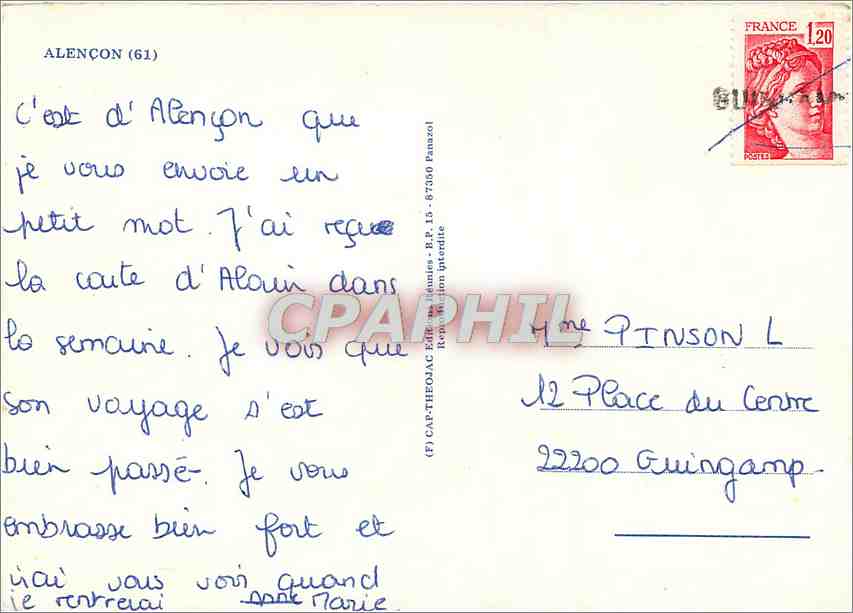 ALENÇON (61)
FRANCE
1,20
POSTES
C'est d'Alençon que
je vous envoie un
petit mot. J'ai reçue
la carte d'Alain dans
la semaine. Je vois que
son voyage s'est
bien passé. Je vous
embrasse bien fort et
irai vous voir quand
je rentrerai
Anne Marie
(F) CAP-THEOJAC Editions Réunies - B.P. 15 - 87350 Panazol
Reproduction interdite
CPAPHIL
Mme PINSON L
12 Place du Centre
22200 Guingamp.